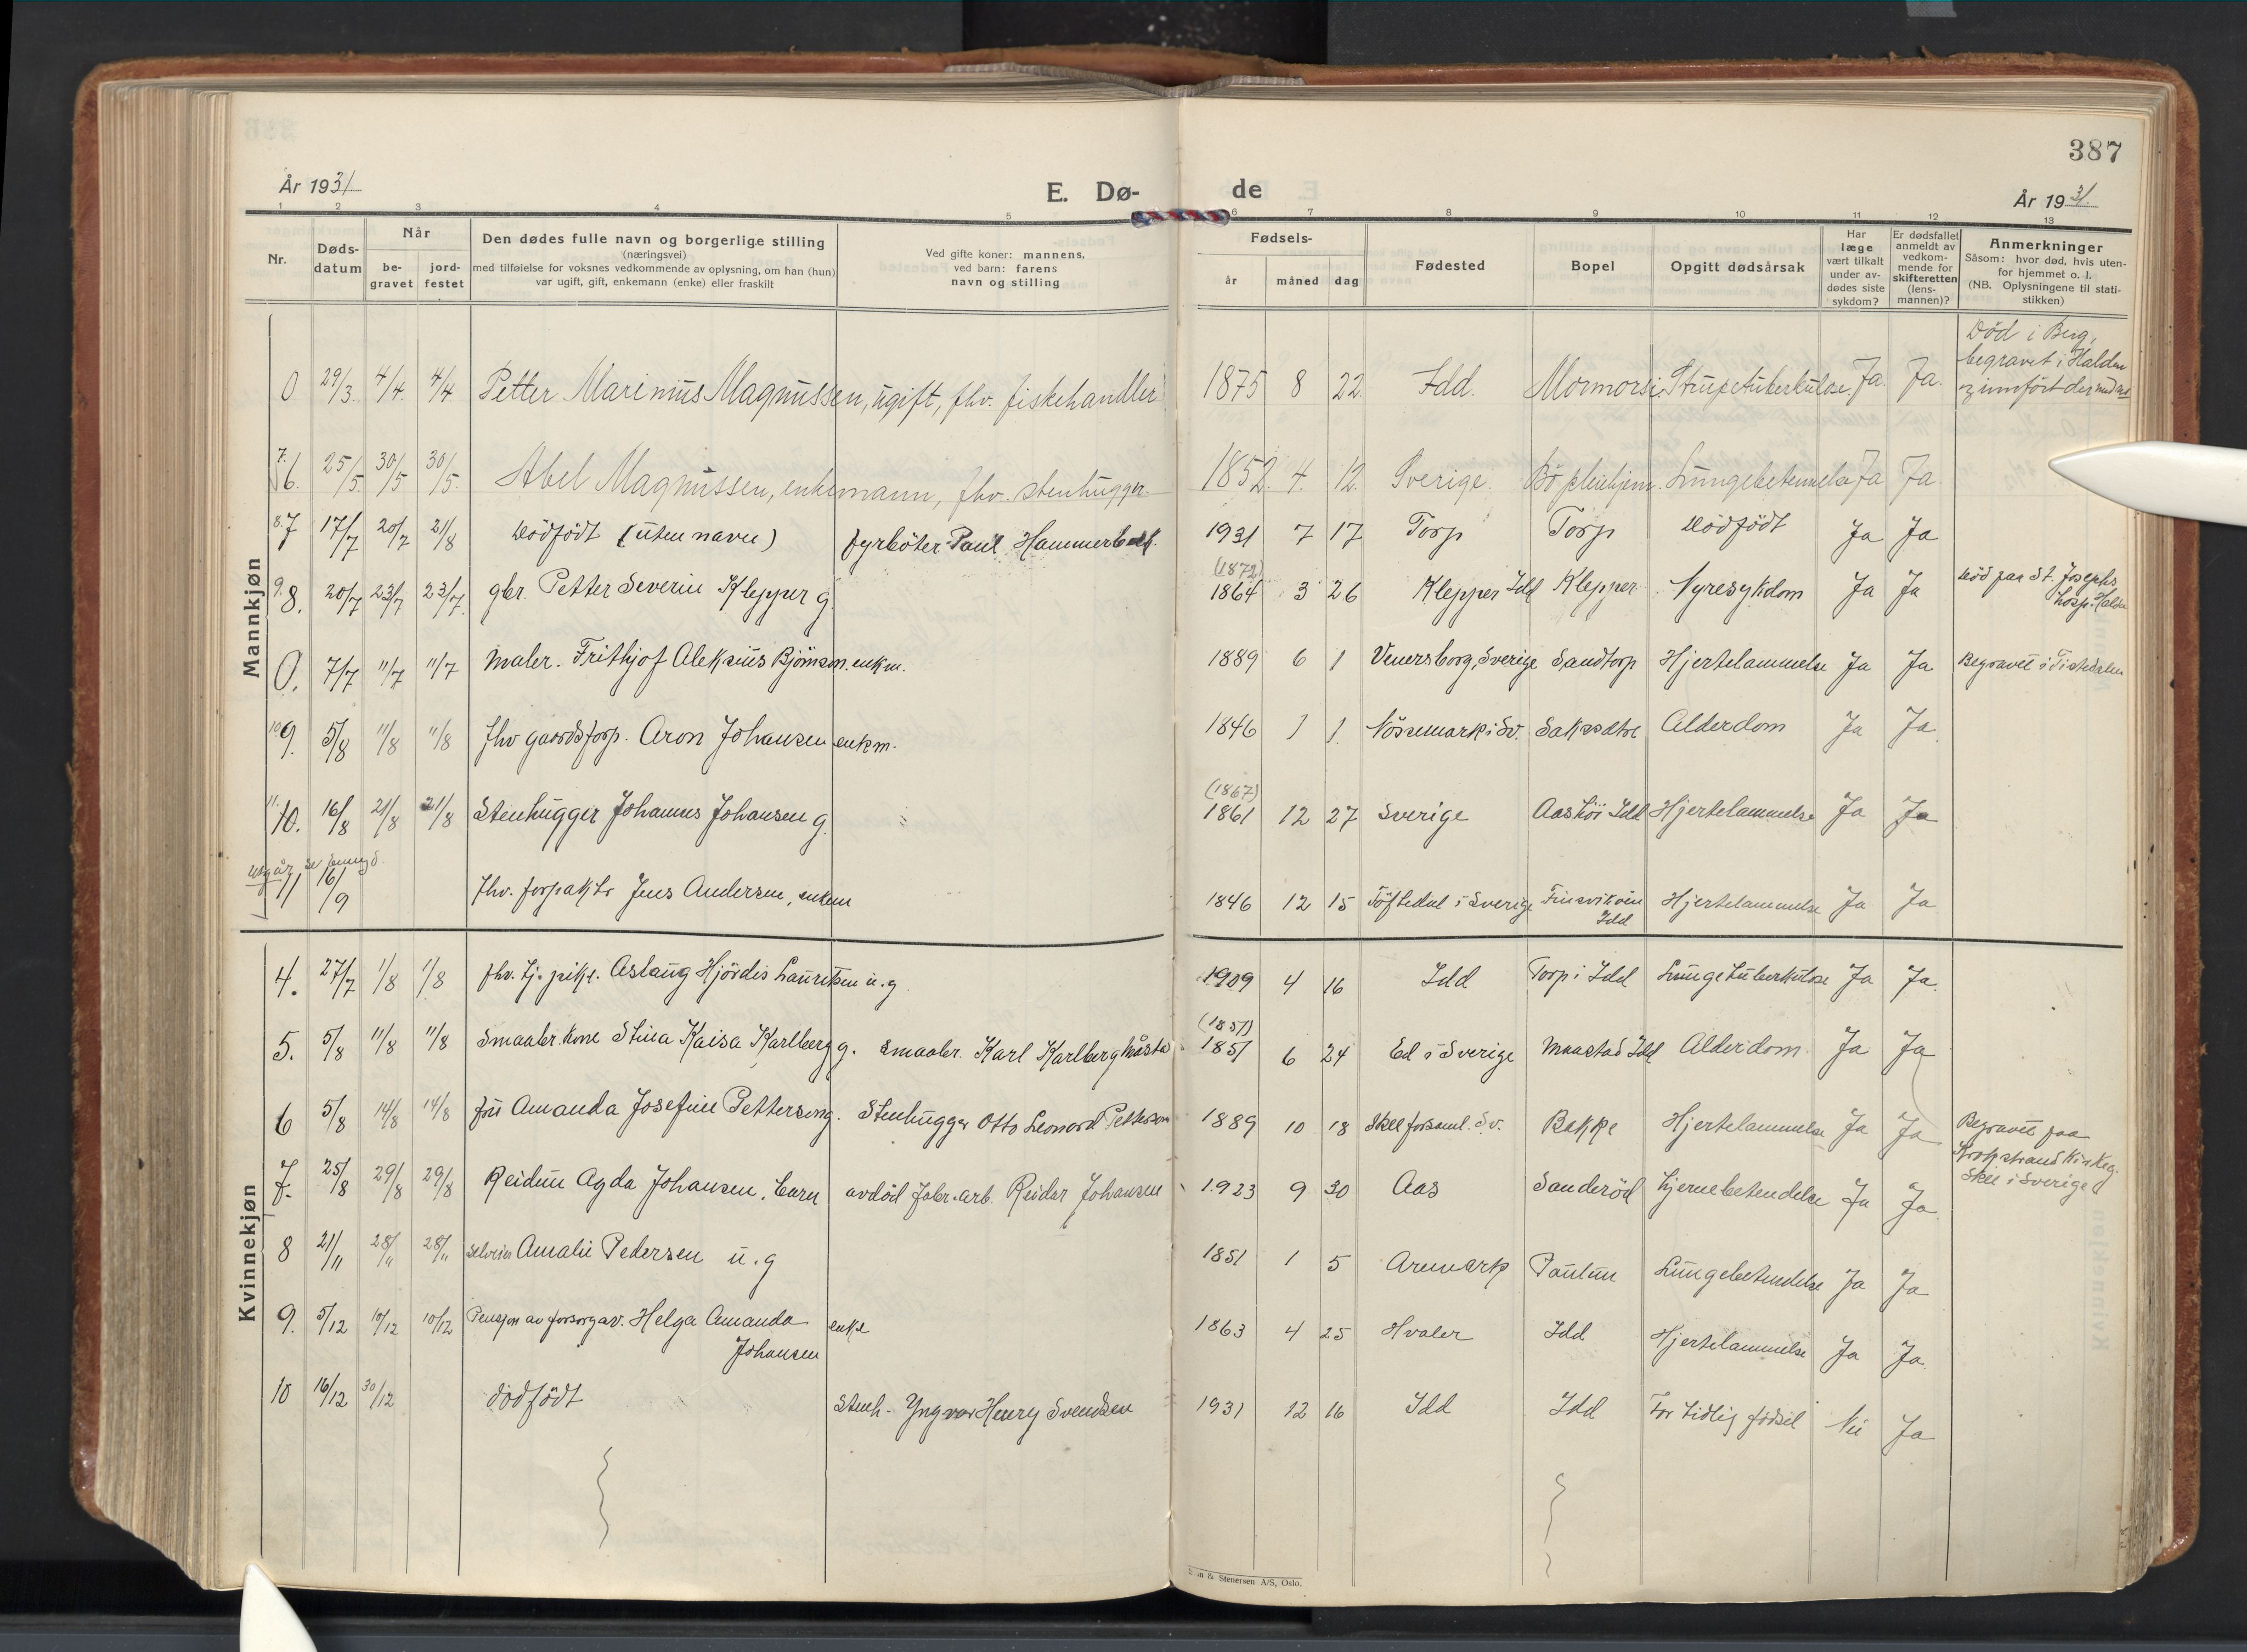 387
År 1931
E. Dø-
de
År 1931.
1 2 3 4 5 6 7 8 9 10 11 12 13
Nr.
Døds-
datum
Når
be-
gravet
jord-
festet
Den dødes fulle navn og borgerlige stilling
(næringsvei)
med tilføielse for voksnes vedkommende av oplysning, om han (hun)
var ugift, gift, enkemann (enke) eller fraskilt
Ved gifte koner: mannens,
ved barn: farens
navn og stilling
Fødsels-
år måned dag
Fødested
Bopel
Opgitt dødsårsak
Har
læge
vært tilkalt
under av-
dødes siste
sykdom?
Er dødsfallet
anmeldt av
vedkom-
mende for
skifteretten
(lens-
mannen)?
Anmerkninger
Såsom: hvor død, hvis uten-
for hjemmet o. l.
(NB. Oplysningene til stati-
stikken)
Mannkjøn
0 29/3. 4/4. 4/4 Petter Marinius Magnussen, ugift, fhv. fiskehandler 1875 8 22. Idd. Strupetuberkulose. Ja. Ja.
Död i Berg,
begravet i Halden
7.
6. 25/5. 30/5 30/5. Abel Magnussen, enkemann, fhv. stenhugger 1852. 4. 12. Sverige. Bö pleiehjem. Lungebetennelse Ja Ja
8. 7 17/7 20/7 21/8 Dödfödt (uten navn) fyrböter Paul Hammerbekk. 1931 7 17 Torp Torp Dödfödt Ja Ja
(1872)
9. 8. 20/7 23/7 23/7. gbr. Petter Severin Klepper g. 1864 3 26 Klepper Idd Klepper Nyresykdom Ja Ja Död paa St. Josephs
hosp. Halden
0. 7/7 11/7 11/7 maler. Frithjof Aleksius Björnson. enkm. 1889 6 1 Venersborg, Sverige Sandtorp Hjertelammelse Ja Ja Begravet i Tistedalen
10 9. 5/8 11/8 11/8 fhv gaardsforp. Aron Johansen enkm. 1846 1 1. Nössemark i Sv. Saksætre Alderdom Ja Ja
(1867)
11. 10. 16/8 21/8 21/8 Stenhugger Johannes Johansen g. 1861 12 27 Sverige Aashöi Idd Hjertelammelse Ja Ja
utgår
11 16/9 fhv. forpakter Jens Andersen, enkem 1846 12 15 Töftedal i Sverige Hjertelammelse Ja Ja
Idd
Kvinnekjøn
4. 27/7 1/8 1/8 fhv. tj. pike. Aslaug Hjördis Lauritsen u.g 1909 4 16 Idd Torp i Idd Lungetuberkulose Ja Ja.
(1857)
5. 5/8 11/8 11/8 Smaabr. kone Stina Kaisa Karlberg g. smaabr. Karl Karlberg 1851 6 24 Ed i Sverige Maastad Idd Alderdom Ja Ja
6 5/8 14/8 14/8 fru Amanda Josefine Petterson g. Stenhugger Otto Leonard Petterson 1889 10 18 Skee forsaml. Sv. Bakke Hjertelammelse Ja Ja Begravet paa
Krokstrand
Skee i Sverige
7. 25/8 29/8 29/8 Reidun Agda Johansen, barn avdöd fabr. arb. Reidar Johansen 1923 9 30 Aas Sanderöd Hjernebetendelse Ja Ja.
8 21/11 28/11 28/11 Amalie Pedersen u.g 1851 1 5 Aremark Paulun Lungebetendelse Ja Ja
9. 5/12 10/12 10/12 Pensjon av forsorgsv. Helga Amanda enke 1863 4 25 Hvaler Idd Hjertelammelse Ja Ja.
Johansen
10 16/12 30/12 dödfödt Stenh. Yngvar Henry Svendsen 1931 12 16 Idd Idd For tidlig födsel Nei Ja
& Stenersen A/S, Oslo.